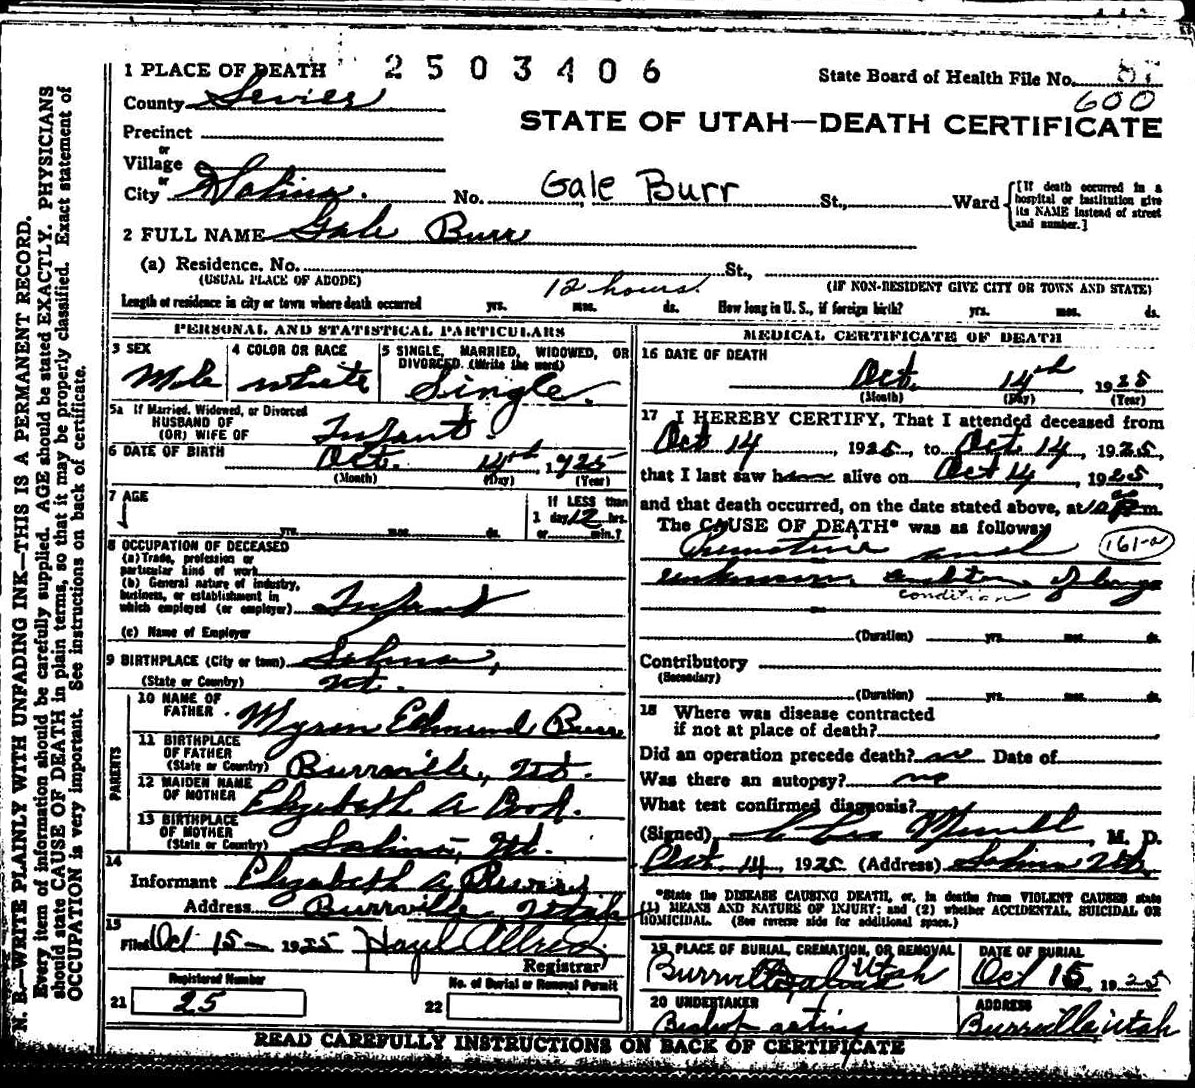 1 PLACE OF DEATH 2503406 State Board of Health File No. 87
County Sevier 600
STATE OF UTAH—DEATH CERTIFICATE
Precinct
or
Village
or
City Salina. No. Gale Burr St., Ward [If death occurred in a hospital or institution give its NAME instead of street and number.]
2 FULL NAME Gale Burr
(a) Residence. No. St.,
(USUAL PLACE OF ABODE) (IF NON-RESIDENT GIVE CITY OR TOWN AND STATE)
12 hours.
Length of residence in city or town where death occurred yrs. mos. ds. How long in U. S., if foreign birth? yrs. mos. ds.
PERSONAL AND STATISTICAL PARTICULARS
3 SEX 4 COLOR OR RACE 5 SINGLE, MARRIED, WIDOWED, OR DIVORCED. (Write the word)
Male white Single.
5a If Married, Widowed, or Divorced
HUSBAND OF
(OR) WIFE OF Infant.
6 DATE OF BIRTH Oct. 14th, 1925
(Month) (Day) (Year)
7 AGE If LESS than
1 day 12 hrs.
yrs. mos. ds. or min.?
8 OCCUPATION OF DECEASED
(a) Trade, profession or
particular kind of work
(b) General nature of industry,
business, or establishment in
which employed (or employer) Infant
(c) Name of Employer
9 BIRTHPLACE (City or town) Salina,
(State or Country) Ut.
PARENTS
10 NAME OF
FATHER Myron Edmund Burr
11 BIRTHPLACE
OF FATHER
(State or Country) Burrville, Ut.
12 MAIDEN NAME
OF MOTHER Elizabeth A
13 BIRTHPLACE
OF MOTHER
(State or Country) Salina, Ut.
14
Informant Elizabeth A
Address Burrville Utah
15
Filed Oct 15— 1925 Hazel Allred
Registrar
Registered Number No. of Burial or Removal Permit
21 25 22
MEDICAL CERTIFICATE OF DEATH
16 DATE OF DEATH
Oct. 14th 1925
(Month) (Day) (Year)
17 I HEREBY CERTIFY, That I attended deceased from
Oct 14 1925, to Oct. 14, 1925,
that I last saw h alive on Oct 14, 1925,
and that death occurred, on the date stated above, at 10 m.
The CAUSE OF DEATH* was as follows:
Premature and 161-a
unknown condition of lungs
condition
(Duration) yrs. mos. ds.
Contributory
(Secondary)
(Duration) yrs. mos. ds.
18 Where was disease contracted
if not at place of death?
Did an operation precede death? no Date of
Was there an autopsy? no
What test confirmed diagnosis?
(Signed) , M. D.
Oct. 14 1925 (Address) Salina Utah.
*State the DISEASE CAUSING DEATH, or, in deaths from VIOLENT CAUSES state
(1) MEANS AND NATURE OF INJURY; and (2) whether ACCIDENTAL, SUICIDAL OR
HOMICIDAL. (See reverse side for additional space.)
19 PLACE OF BURIAL, CREMATION, OR REMOVAL DATE OF BURIAL
Burrville Utah Oct 15, 1925
20 UNDERTAKER ADDRESS
Bishop acting Burrville Utah
READ CAREFULLY INSTRUCTIONS ON BACK OF CERTIFICATE
N. B.—WRITE PLAINLY WITH UNFADING INK—THIS IS A PERMANENT RECORD.
Every item of information should be carefully supplied. AGE should be stated EXACTLY. PHYSICIANS
should state CAUSE OF DEATH in plain terms, so that it may be properly classified. Exact statement of
OCCUPATION is very important. See instructions on back of certificate.